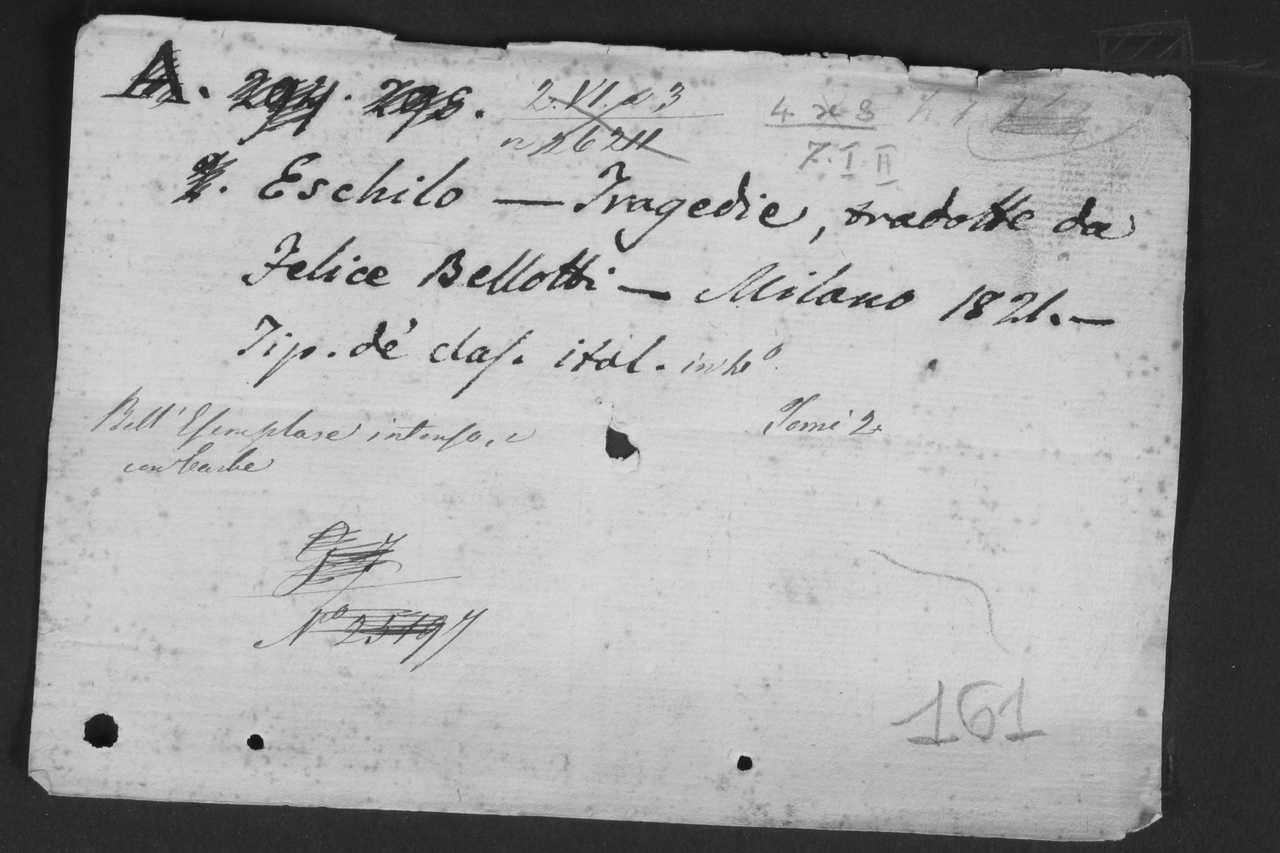 A. 294. 295. 2.VI.a 3 4 x 8
n 26211 7.I.II
Eschilo — Tragedie, tradotte da
Felice Bellotti — Milano 1821.—
Tip. dé clas. ital. in 4°
Bell' Esemplare intonso, e Tomi 2.
con barbe
N° 25197
161